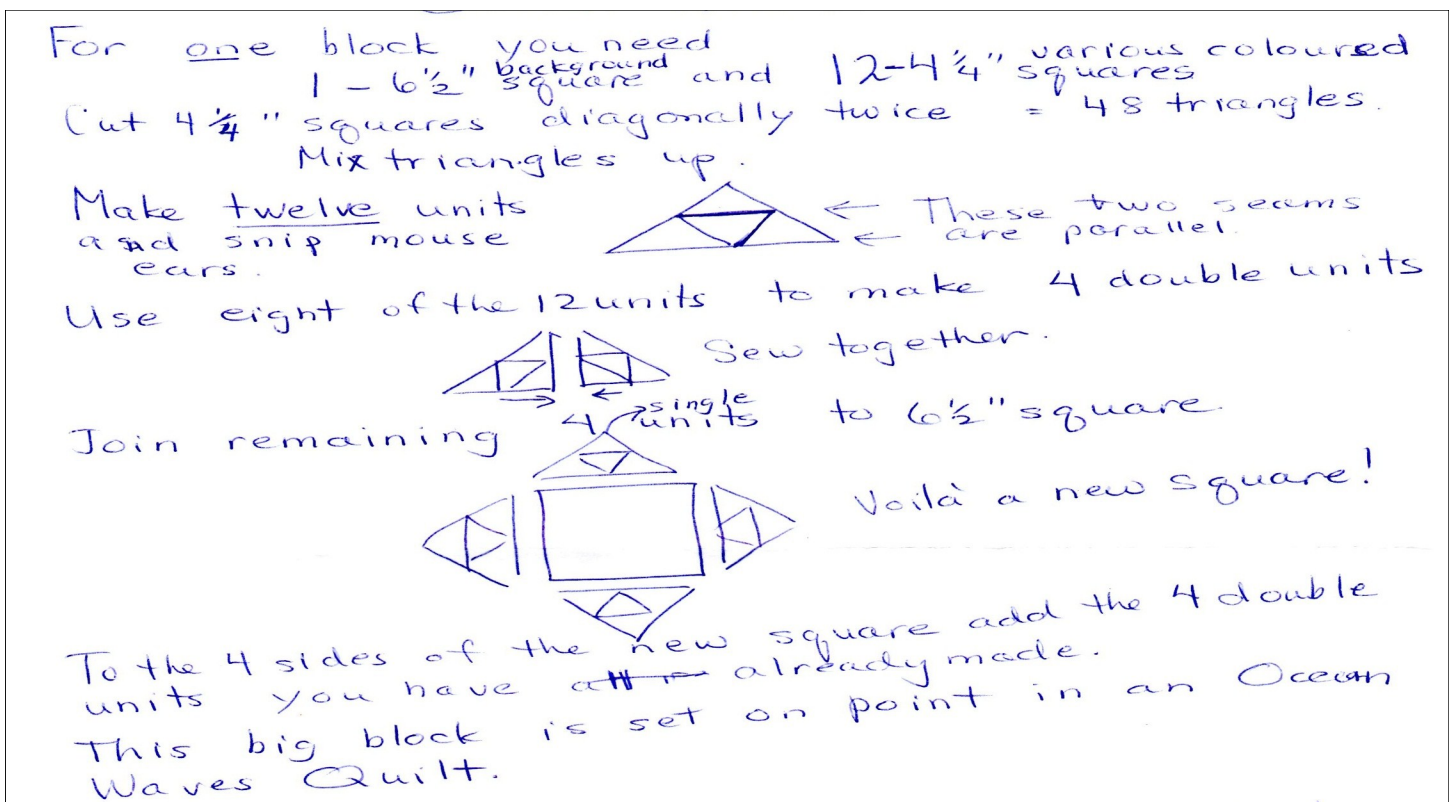 For one block you need
1 - 6½" background square and 12-4¼" various coloured squares
Cut 4¼" squares diagonally twice = 48 triangles.
Mix triangles up.
Make twelve units ← These two seams
and snip mouse ← are parallel.
ears.
Use eight of the 12 units to make 4 double units
Sew together.
Join remaining 4 single units to 6½" square.
Voilà a new square!
To the 4 sides of the new square add the 4 double
units you have already made.
This big block is set on point in an Ocean
Waves Quilt.